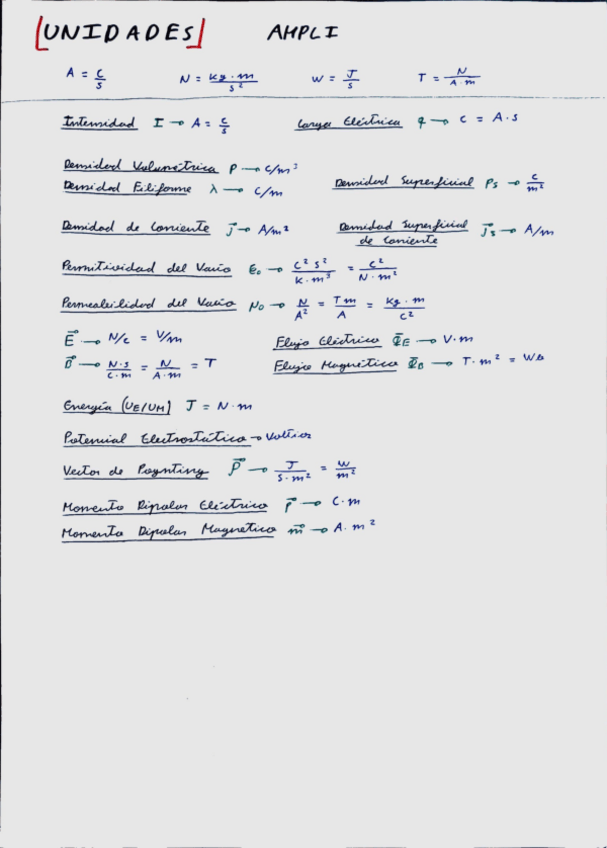 [UNIDADES] AMPLI
A = C/s N = kg·m/s² W = J/s T = N/A·m
Intensidad I → A = C/s Carga Eléctrica q → C = A·s
Densidad Volumétrica ρ → C/m³
Densidad Filiforme λ → C/m Densidad Superficial ρs → C/m²
Densidad de Corriente j⃗ → A/m² Densidad Superficial de Corriente j⃗s → A/m
Permitividad del Vacío ε₀ → C² s²/K·m³ = C²/N·m²
Permeabilidad del Vacío μ₀ → N/A² = Tm/A = kg·m/C²
E⃗ → N/C = V/m Flujo Eléctrico Φ_E → V·m
B⃗ → N·s/C·m = N/A·m = T Flujo Magnético Φ_B → T·m² = Wb
Energía (UE/UM) J = N·m
Potencial Electrostático → Voltios
Vector de Poynting P⃗ → J/s·m² = W/m²
Momento Dipolar Eléctrico p⃗ → C·m
Momento Dipolar Magnético m⃗ → A·m²